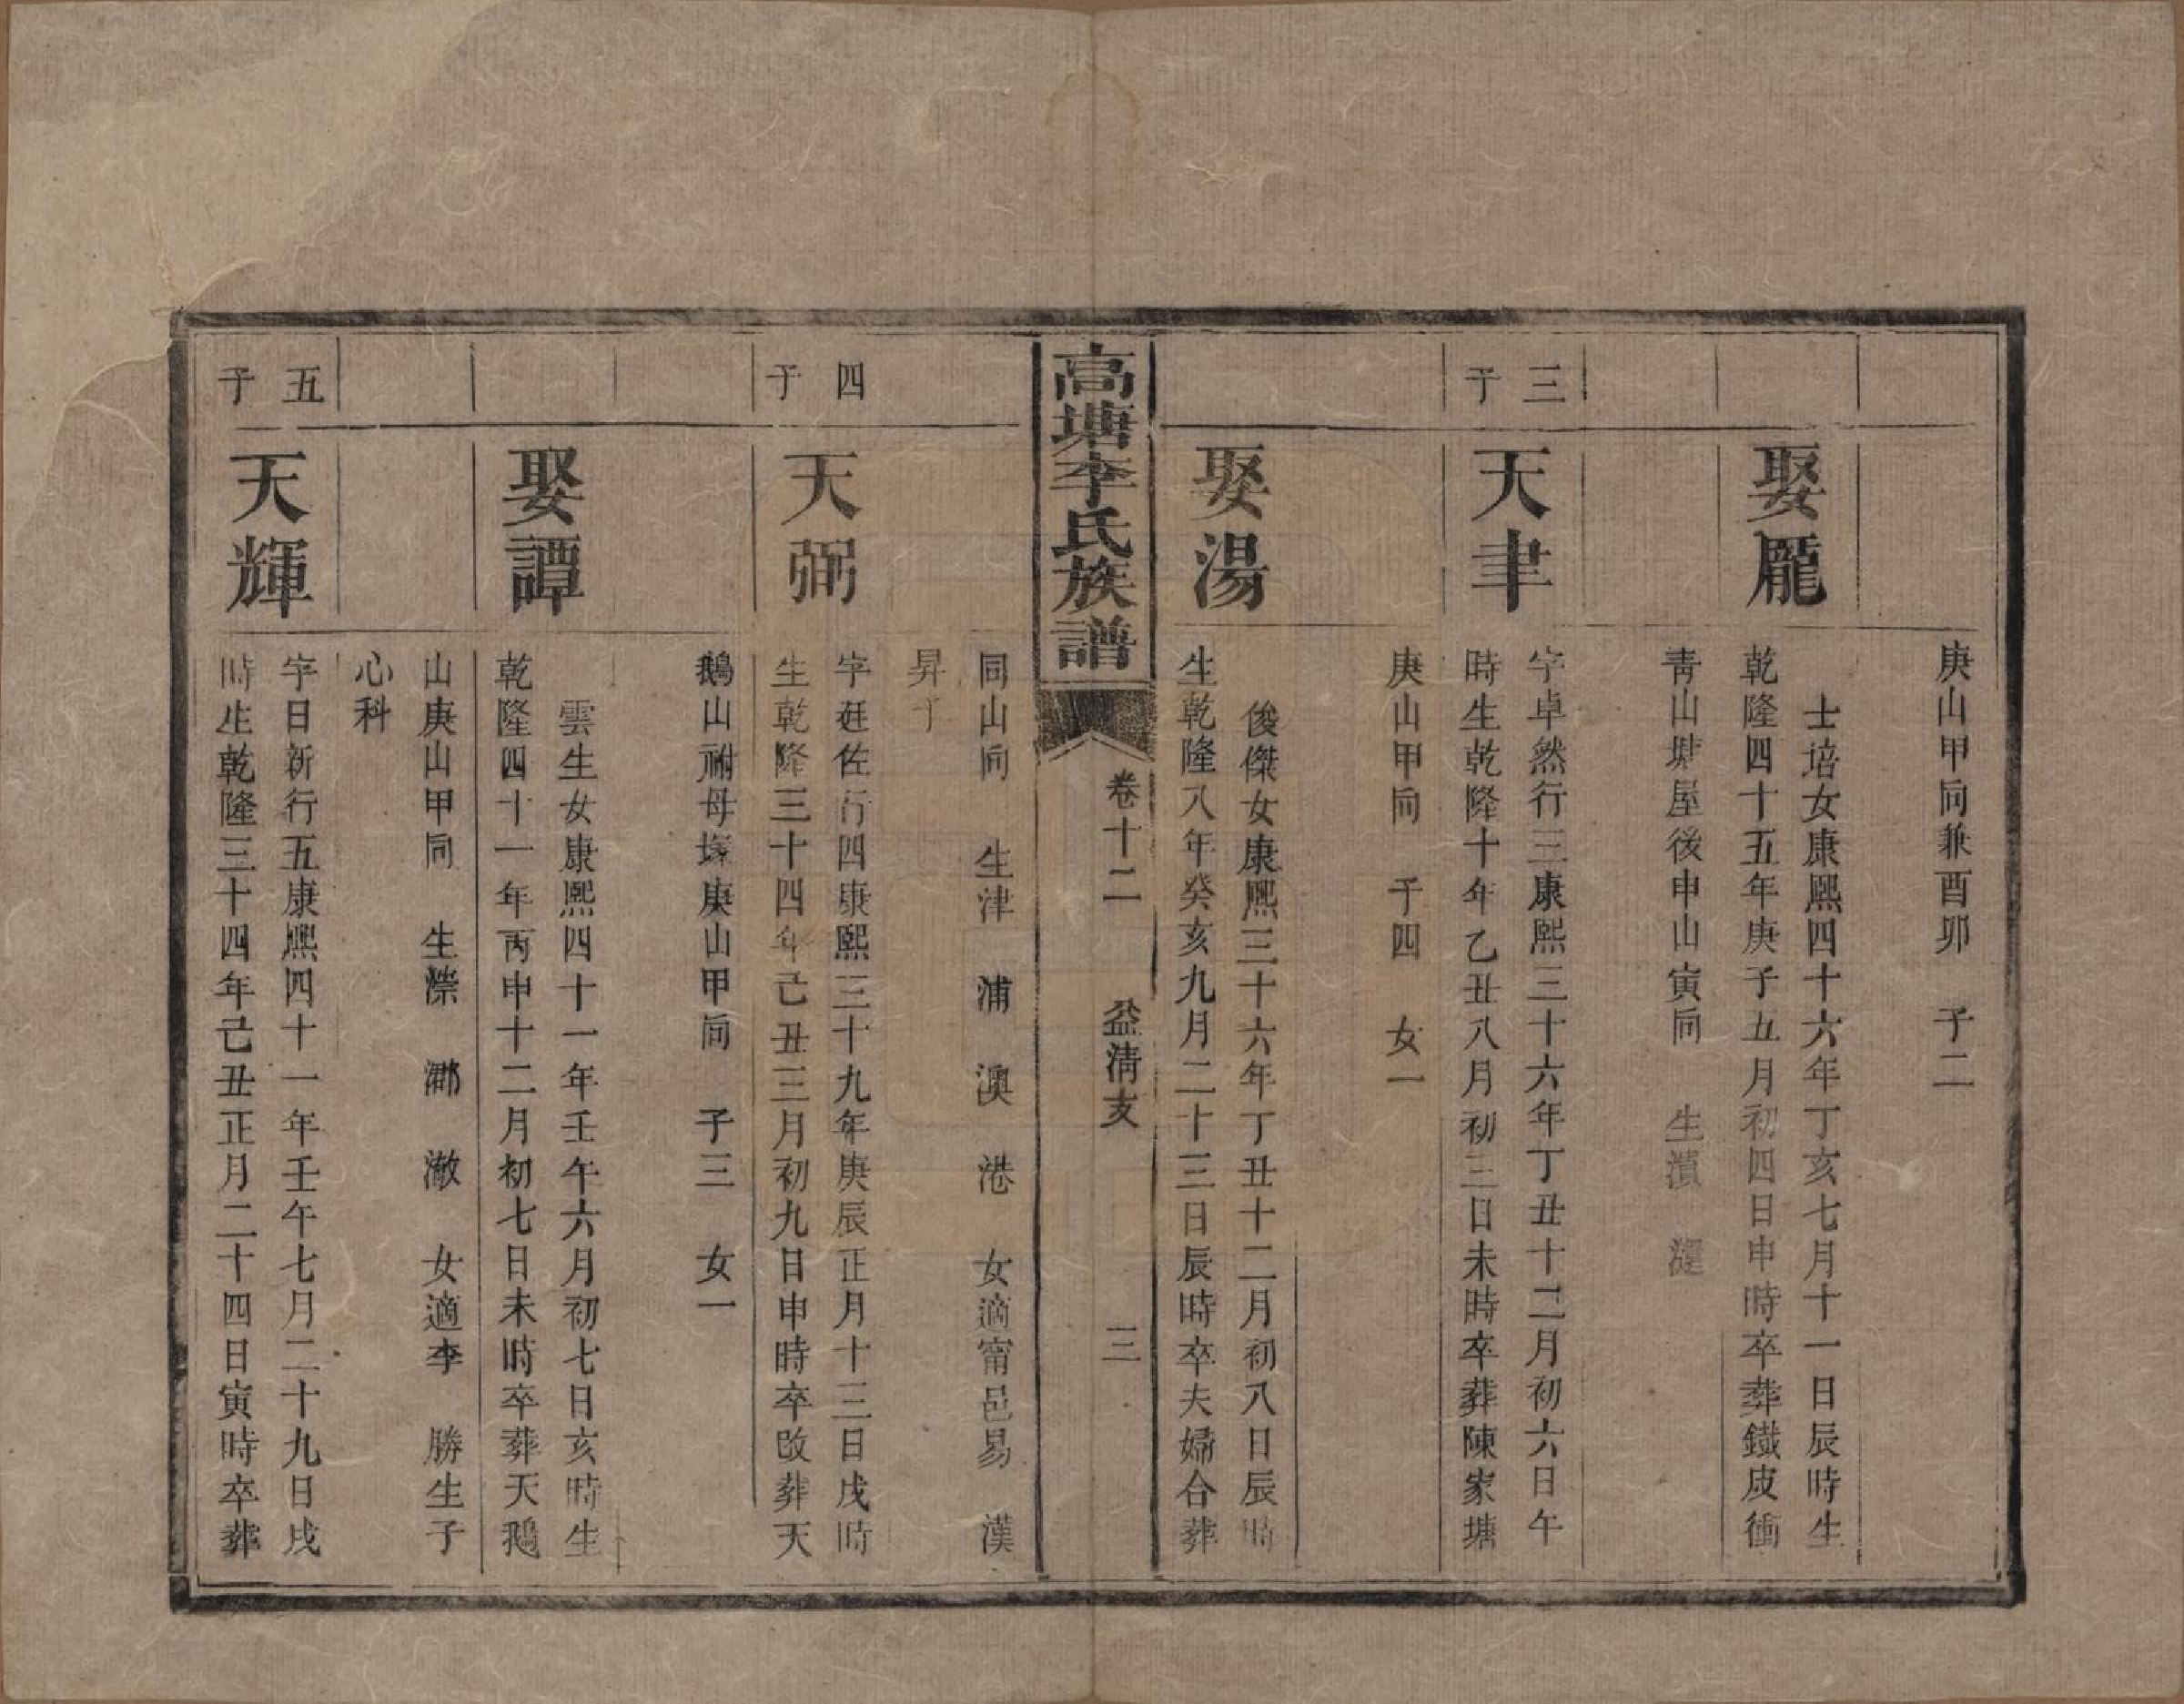 庚山甲向兼酉卯　子二
娶龎
士培女康熙四十六年丁亥七月十一日辰時生
乾隆四十五年庚子五月初四日申時卒葬鐵皮衝
青山塘屋後申山寅向　生濱　湰
三子
天聿
字卓然行三康熙三十六年丁丑十二月初六日午
時生乾隆十年乙丑八月初三日未時卒葬陳家塘
庚山甲向　子四　女一
娶湯
俊傑女康熙三十六年丁丑十二月初八日辰時
生乾隆八年癸亥九月二十三日辰時卒夫婦合葬
高塘李氏族譜
卷十二　益清支　三
同山向　生津　浦　澳　港　女適甯邑易　漢
昇子
四子
天弼
字廷佐行四康熙三十九年庚辰正月十三日戌時
生乾隆三十四年己丑三月初九日申時卒改葬天
鵝山祔母塚庚山甲向　子三　女一
娶譚
雲生女康熙四十一年壬午六月初七日亥時生
乾隆四十一年丙申十二月初七日未時卒葬天鵝
山庚山甲向　生濚　澵　澈　女適李　勝生子
心科
五子
天輝
字日新行五康熙四十一年壬午七月二十九日戌
時生乾隆三十四年己丑正月二十四日寅時卒葬